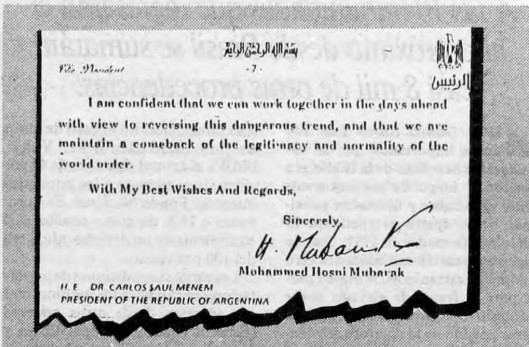 بسم الله الرحمن الرحيم
The President
-7-
الرئيس
I am confident that we can work together in the days ahead
with view to reversing this dangerous trend, and that we are
maintain a comeback of the legitimacy and normality of the
world order.
With My Best Wishes And Regards,
Sincerely
H. Mubarak
Mohammed Hosni Mubarak
H. E DR. CARLOS SAUL MENEM
PRESIDENT OF THE REPUBLIC OF ARGENTINA